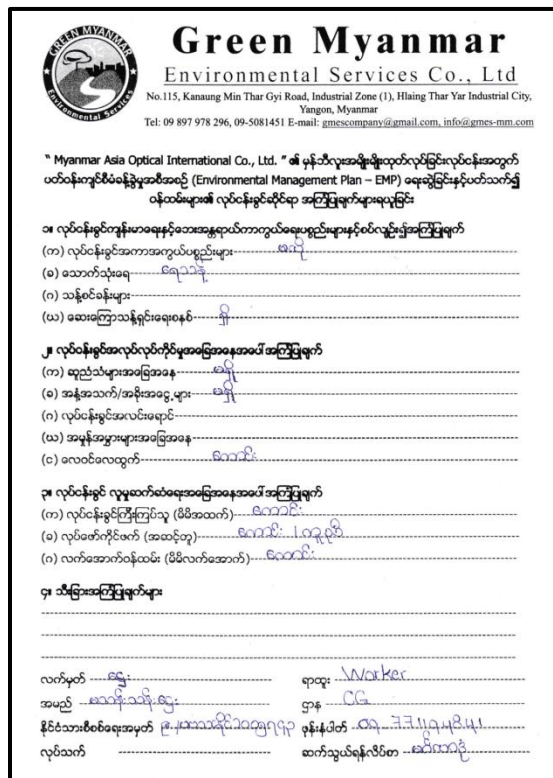 GREEN MYANMAR
Environmental Services
Green Myanmar
Environmental Services Co., Ltd
No.115, Kanaung Min Thar Gyi Road, Industrial Zone (1), Hlaing Thar Yar Industrial City,
Yangon, Myanmar
Tel: 09 897 978 296, 09-5081451 E-mail: gmescompany@gmail.com, info@gmes-mm.com
" Myanmar Asia Optical International Co., Ltd. " ၏ မှန်ဘီလူးအမျိုးမျိုးထုတ်လုပ်ခြင်းလုပ်ငန်းအတွက်
ပတ်ဝန်းကျင်စီမံခန့်ခွဲမှုအစီအစဉ် (Environmental Management Plan – EMP) ရေးဆွဲခြင်းနှင့်ပတ်သက်၍
ဝန်ထမ်းများ၏ လုပ်ငန်းခွင်ဆိုင်ရာ အကြံပြုချက်များရယူခြင်း
၁။ လုပ်ငန်းခွင်ကျန်းမာရေးနှင့်ဘေးအန္တရာယ်ကာကွယ်ရေးပစ္စည်းများနှင့်စပ်လျဉ်း၍အကြံပြုချက်
(က) လုပ်ငန်းခွင်အကာအကွယ်ပစ္စည်းများ
(ခ) သောက်သုံးရေ ရေသန့်
(ဂ) သန့်စင်ခန်းများ
(ဃ) ဆေးကြောသန့်ရှင်းရေးစနစ် ရှိ
၂။ လုပ်ငန်းခွင်အလုပ်လုပ်ကိုင်မှုအခြေအနေအပေါ် အကြံပြုချက်
(က) ဆူညံသံများအခြေအနေ မရှိ
(ခ) အနံ့အသက်/အခိုးအငွေ့များ မရှိ
(ဂ) လုပ်ငန်းခွင်အလင်းရောင်
(ဃ) အမှုန်အမွှားများအခြေအနေ
(င) လေဝင်လေထွက် ကောင်း
၃။ လုပ်ငန်းခွင် လူမှုဆက်ဆံရေးအခြေအနေအပေါ် အကြံပြုချက်
(က) လုပ်ငန်းခွင်ကြီးကြပ်သူ (မိမိအထက်) ကောင်း
(ခ) လုပ်ဖော်ကိုင်ဖက် (အဆင့်တူ) ကောင်း
(ဂ) လက်အောက်ဝန်ထမ်း (မိမိလက်အောက်) ကောင်း
၄။ သီးခြားအကြံပြုချက်များ
လက်မှတ် ဌေး ရာထူး Worker
အမည် မသန်းသန်းဌေး ဌာန CG
နိုင်ငံသားစိစစ်ရေးအမှတ် ဖုန်းနံပါတ် 09 771194841
လုပ်သက် ဆက်သွယ်ရန်လိပ်စာ မင်္ဂလာဒုံ